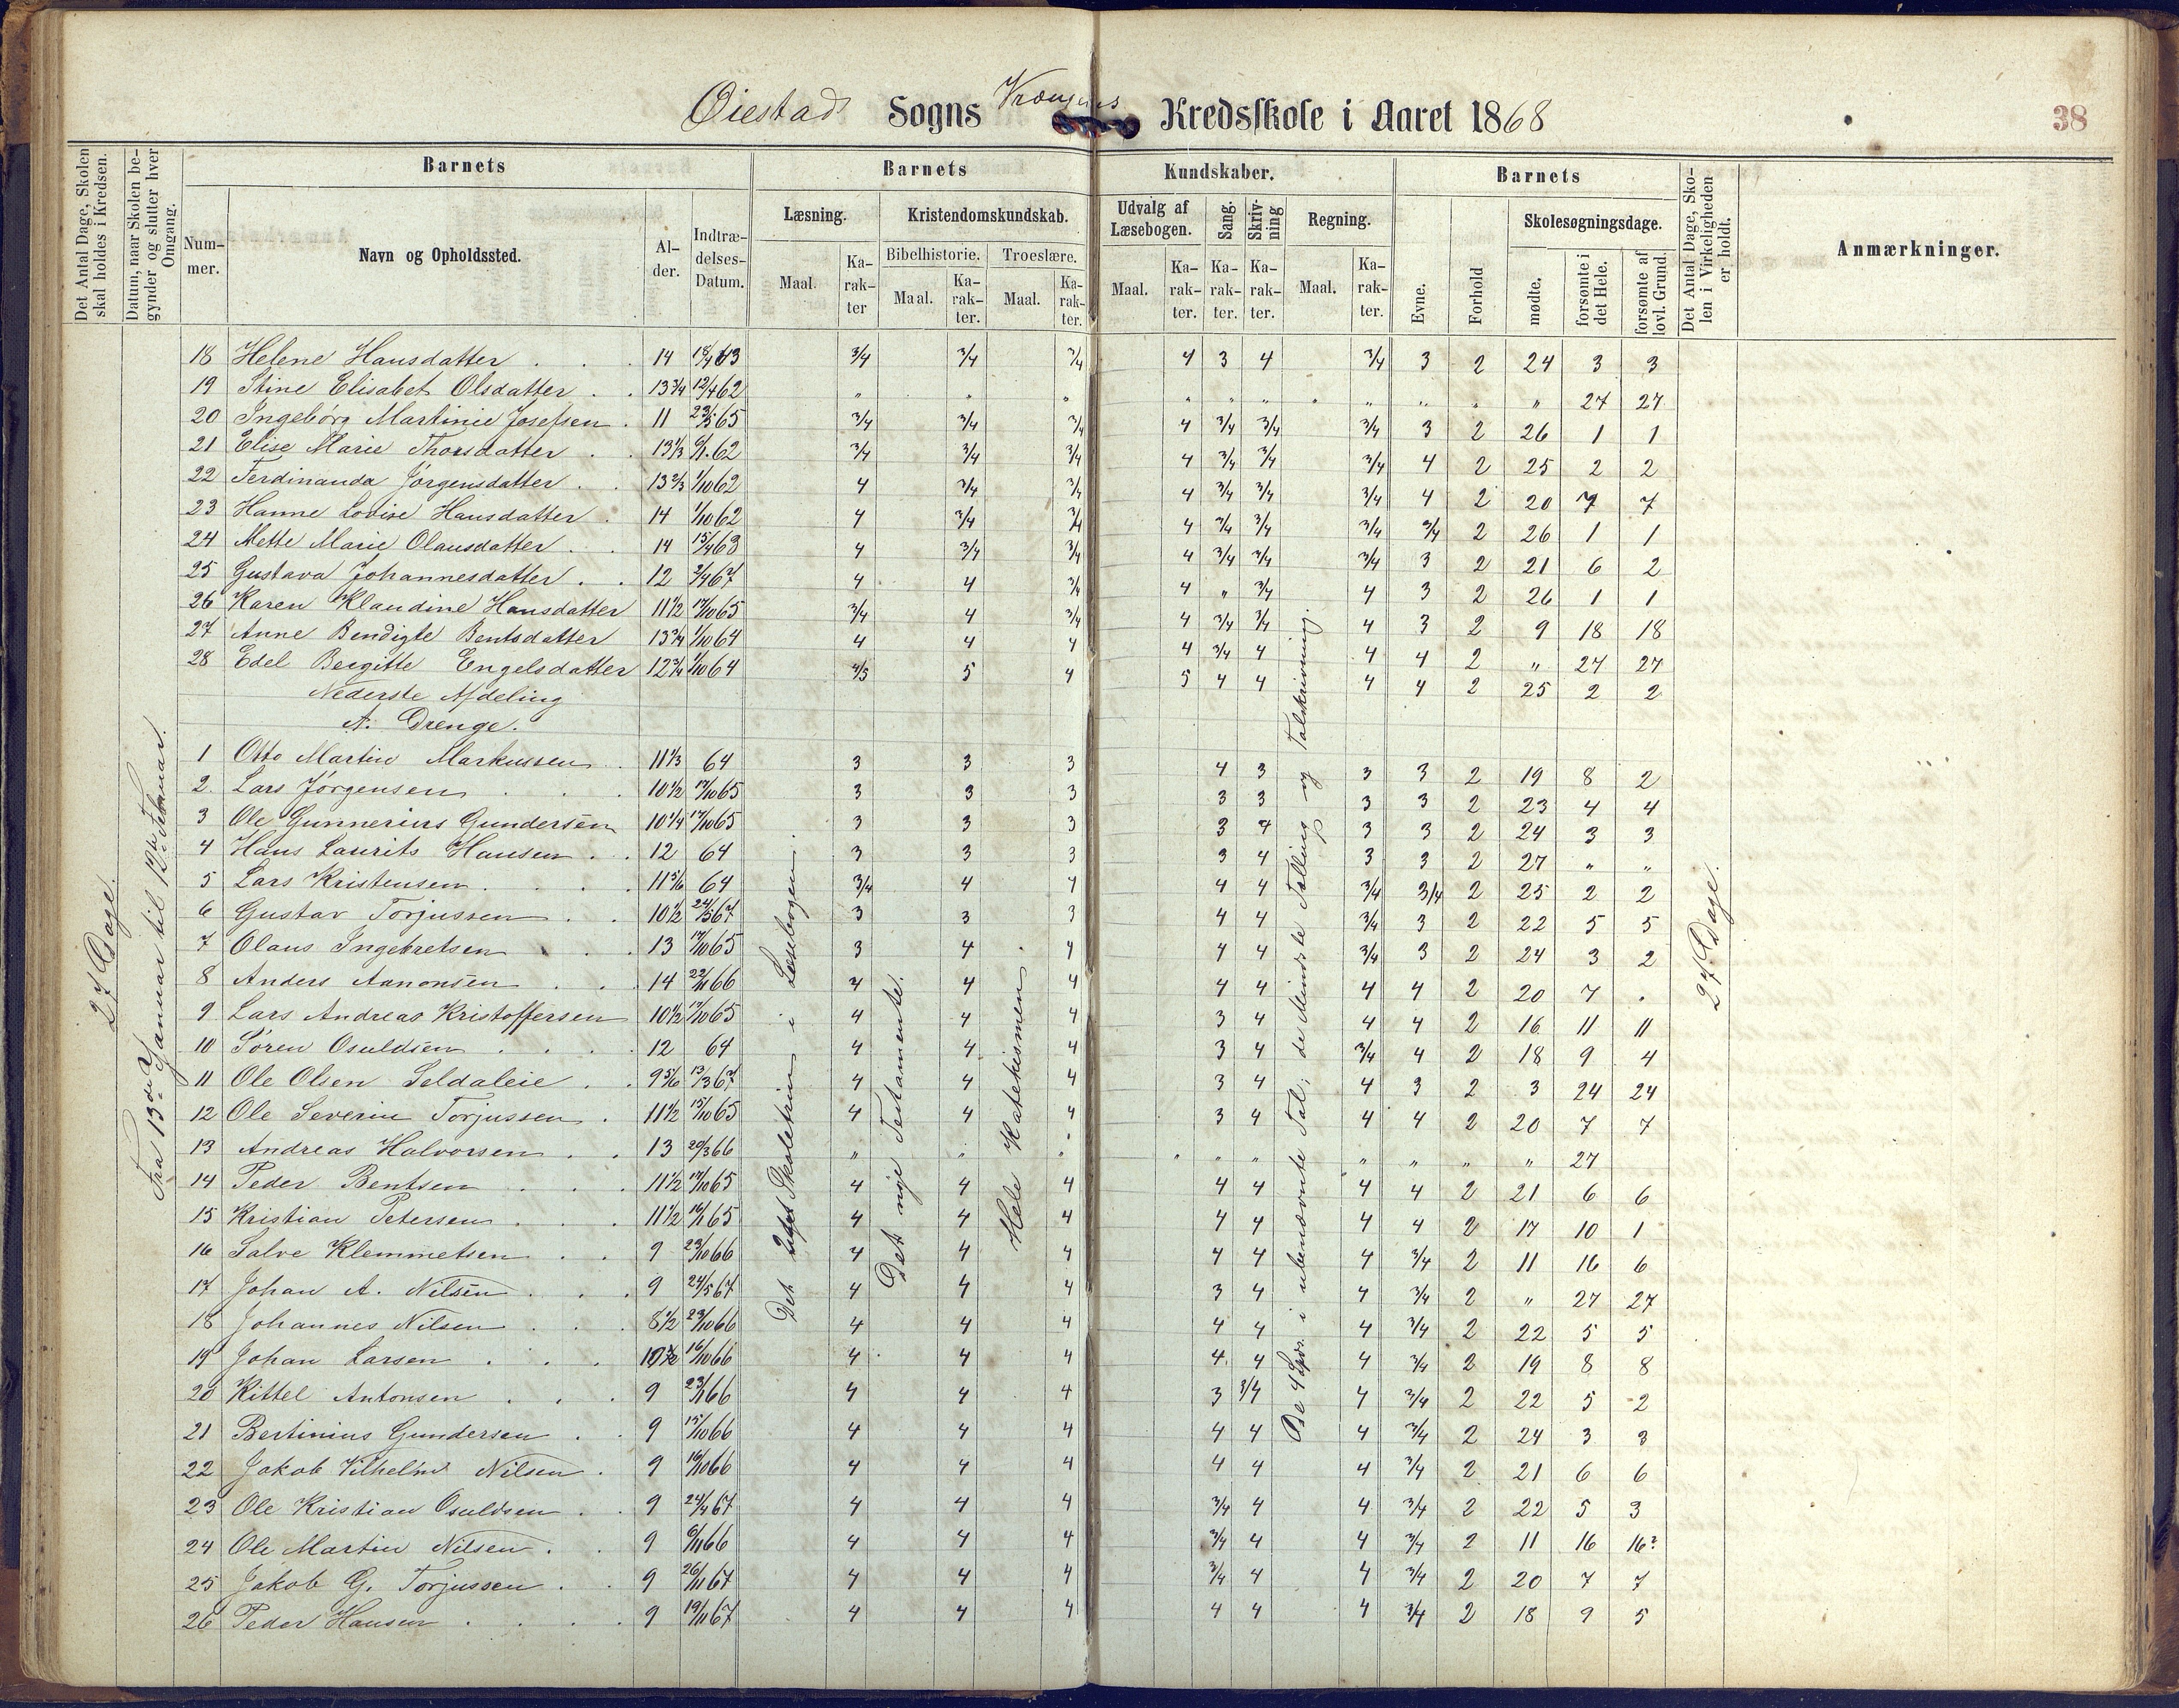 Øiestad Sogns Kredsskole i Aaret 1868
38
Det Antal Dage, Skolen skal holdes i Kredsen.
Datum, naar Skolen begynder og slutter hver Omgang.
Barnets
Barnets
Kundskaber.
Barnets
Det Antal Dage, Skolen i Virkeligheden er holdt.
Anmærkninger.
Nummer.
Navn og Opholdssted.
Alder.
Indtrædelses-Datum.
Læsning.
Kristendomskundskab.
Udvalg af Læsebogen.
Sang.
Skrivning
Regning.
Evne.
Forhold
Skolesøgningsdage.
Bibelhistorie.
Troeslære.
Maal.
Karakter
Maal.
Karakter.
Maal.
Karakter.
Maal.
Karakter.
Karakter.
Karakter.
Maal.
Karakter.
mødte.
forsømte i det Hele.
forsømte af lovl. Grund.
27 Dage.
Fra 13de Januar til 12te Februar.
Det Skoletrin i Læsebogen.
Det nye Testamente.
Hele Katekismen.
De 4 Spec. i ubenævnte Tal; de Mindste Tælling og Talskrivning.
27 Dage.
18 Helene Hansdatter 14 18/4 63 3/4 3/4 3/4 4 3 4 3/4 3 2 24 3 3
19 Stine Elisabet Olsdatter 13 3/4 12/4 62 " " " " " " " " " " 27 27
20 Ingebørg Martinie Josefsen 11 23/5 65 3/4 3/4 3/4 4 3/4 3/4 3/4 3 2 26 1 1
21 Elise Marie Thorsdatter 13 1/3 6/1 62 3/4 3/4 3/4 4 3/4 3/4 3/4 4 2 25 2 2
22 Ferdinanda Jørgensdatter 13 2/3 1/10 62 4 3/4 3/4 4 3/4 3/4 3/4 4 2 20 7 7
23 Hanne Lovise Hansdatter 14 1/10 62 4 3/4 3/4 4 3/4 3/4 3/4 3/4 2 26 1 1
24 Mette Marie Olausdatter 14 15/4 63 4 3/4 3/4 4 3/4 3/4 3/4 3 2 21 6 2
25 Gustava Johannesdatter 12 2/4 67 4 4 3/4 4 " 3/4 4 3 2 26 1 1
26 Karen Klaudine Hansdatter 11 1/2 17/10 65 3/4 4 3/4 4 3/4 3/4 4 3 2 9 18 18
27 Anne Bendigte Bentsdatter 13 3/4 1/10 64 4 4 4 4 3/4 4 4 4 2 " 27 27
28 Edel Bergitte Engelsdatter 12 3/4 1/10 64 4/5 5 4 5 4 4 4 4 2 25 2 2
Nederste Afdeling
A. Drenge.
1 Otto Martin Markussen 11 1/3 64 3 3 3 4 3 3 3 2 19 8 2
2. Lars Jørgensen 10 1/2 17/10 65 3 3 3 3 3 3 3 2 23 4 4
3 Ole Gunnerius Gundersen 10 1/4 17/10 65 3 3 3 3 4 3 3 2 24 3 3
4 Hans Laurits Hansen 12 64 3 3 3 3 4 3 3 2 27 " "
5 Lars Kristensen 11 5/6 64 3/4 4 4 4 4 3/4 3/4 2 25 2 2
6 Gustav Torjussen 10 1/2 24/5 67 3 3 3 4 4 3/4 3 2 22 5 5
7 Olaus Ingebretsen 13 17/10 65 3 4 4 4 4 3/4 3 2 24 3 2
8 Anders Aanonsen 14 22/11 66 4 4 4 4 4 4 4 2 20 7 .
9 Lars Andreas Kristoffersen 10 1/2 17/10 65 4 4 4 3 4 4 4 2 16 11 11
10 Søren Osuldsen 12 64 4 4 4 3 4 3/4 4 2 18 9 4
11 Ole Olsen Seldaleie 9 5/6 13/3 67 4 4 4 3 4 4 3 2 3 24 24
12 Ole Severin Torjussen 11 1/2 15/10 65 4 4 4 3 4 4 4 2 20 7 7
13 Andreas Halvorsen 13 20/3 66 " " " " " " " " " " 27
14 Peder Bentsen 11 1/2 17/10 65 4 4 4 4 4 4 4 2 21 6 6
15 Kristian Petersen 11 1/2 16/1 65 4 4 4 4 4 4 4 2 17 10 1
16 Salve Klemmetsen 9 23/10 66 4 4 4 4 4 4 3/4 2 11 16 6
17 Johan A. Nilsen 9 24/5 67 4 4 4 3 4 4 3/4 2 " 27 27
18 Johannes Nilsen 8 1/2 23/10 66 4 4 4 4 4 4 3/4 2 22 5 5
19 Johan Larsen 16/10 66 4 4 4 4. 4 4 3/4 2 19 8 8
20 Kittel Antonsen 9 23/1 66 4 4 4 3 3/4 4 3/4 2 22 5 2
21 Bertinius Gundersen 9 15/10 66 4 4 4 4 4 4 3/4 2 24 3 3
22 Jakob Vilhelm Nilsen 9 16/10 66 4 4 4 4 4 4 3/4 2 21 6 6
23 Ole Kristian Osuldsen 9 24/4 67 4 4 4 3/4 4 4 3/4 2 22 5 3
24 Ole Martin Nilsen 9 6/11 66 4 4 4 3/4 4 4 3/4 2 11 16 16?
25 Jakob G. Torjussen 9 26/11 67 4 4 4 3/4 4 4 3/4 2 20 7 7
26 Peder Hansen 9 19/11 67 4 4 4 4 4 4 3/4 2 18 9 5